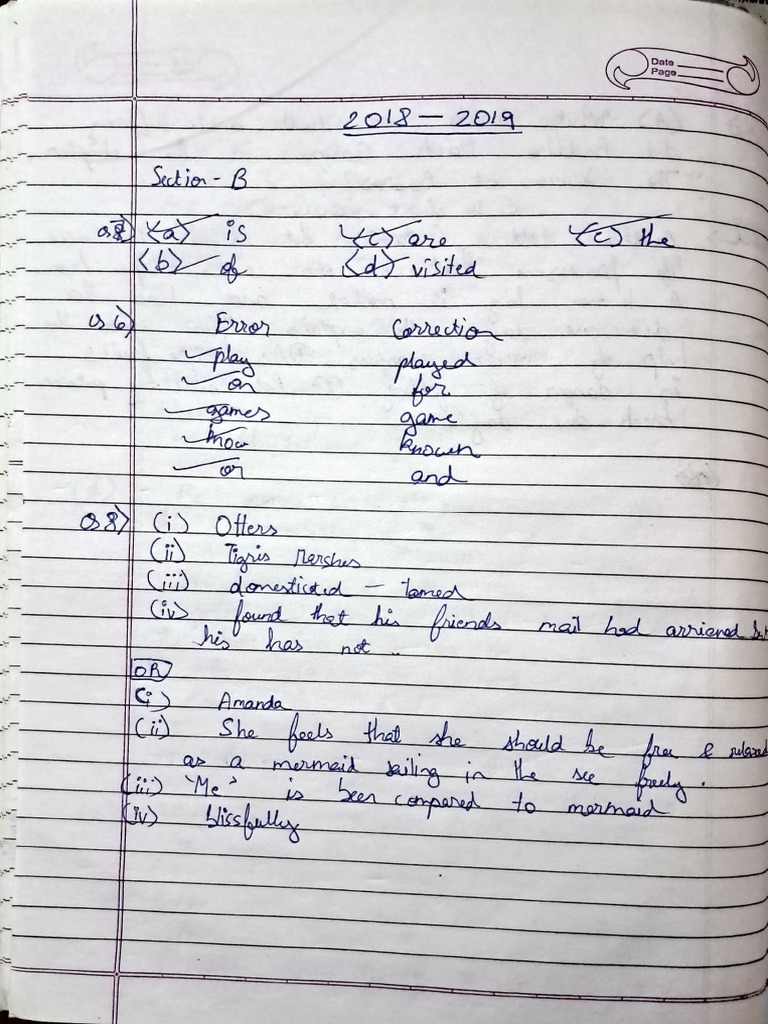 Date
Page
2018 — 2019
Section - B
(a) is (c) are (e) the
(b) of (d) visited
Q 6) Error Correction
play played
on for
games game
know known
or and
Q 8) (i) Otters
(ii) Tigris Marshes
(iii) domesticated - Tamed
(iv) found that his friends mail had
his has not ..
OR
(i) Amanda
(ii) She feels that she should be free &
as a mermaid sailing in the see freely.
(iii) 'Me' is been compared to mermaid
(iv) blissfully